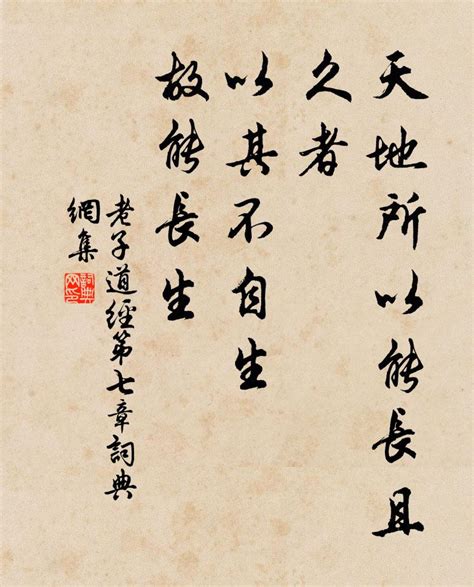 天地所以能長且
久者
以其不自生
故能長生
老子道經第七章詞典
網集
詞典網印